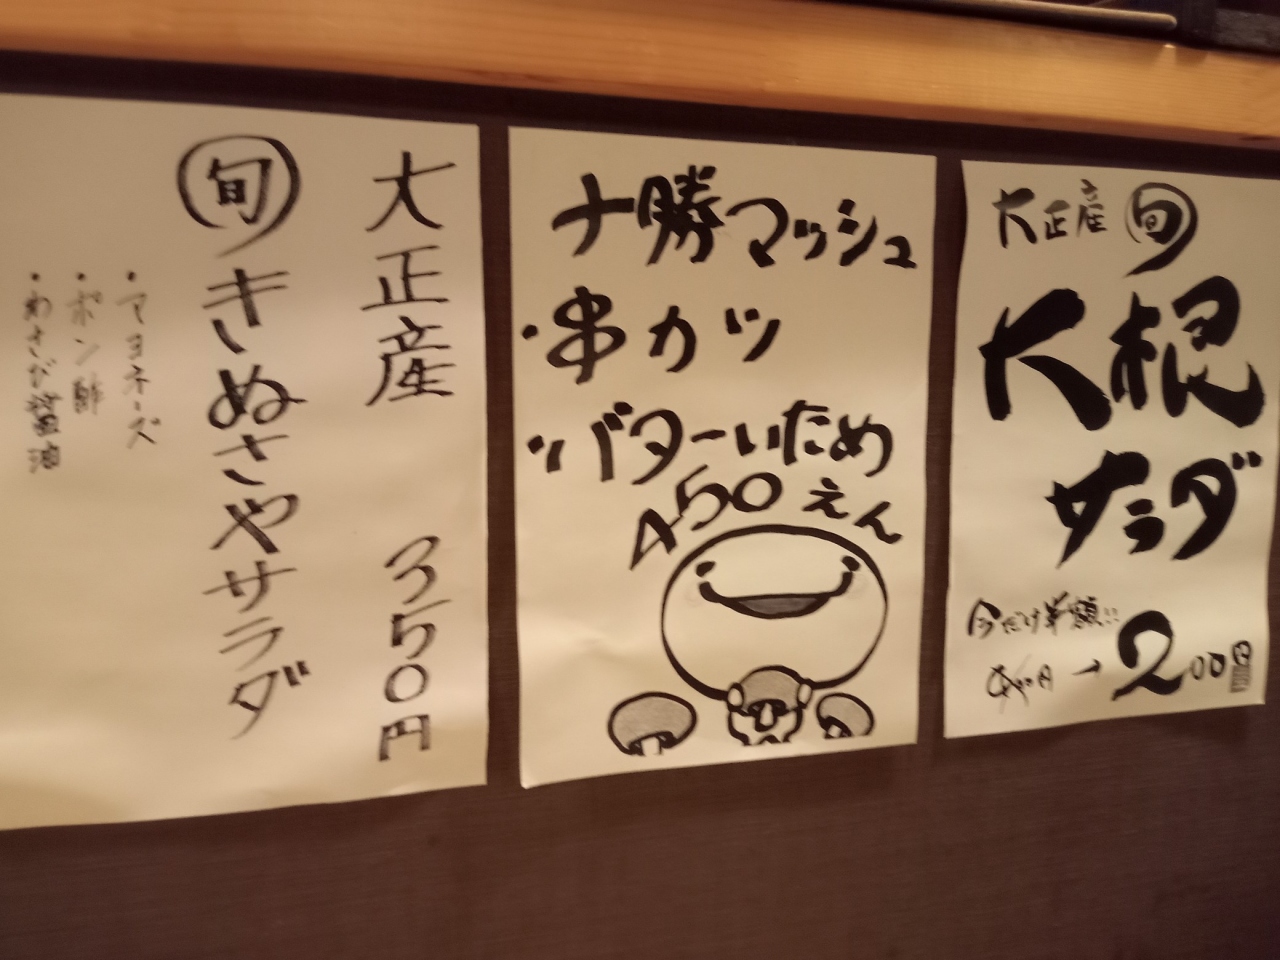 大正産 350円
旬きぬさやサラダ
・マヨネーズ
・ポン酢
・わさび醤油
十勝マッシュ
・串カツ
・バターいため
450えん
大正産 旬
大根
サラダ
今だけ半額!!
→200円